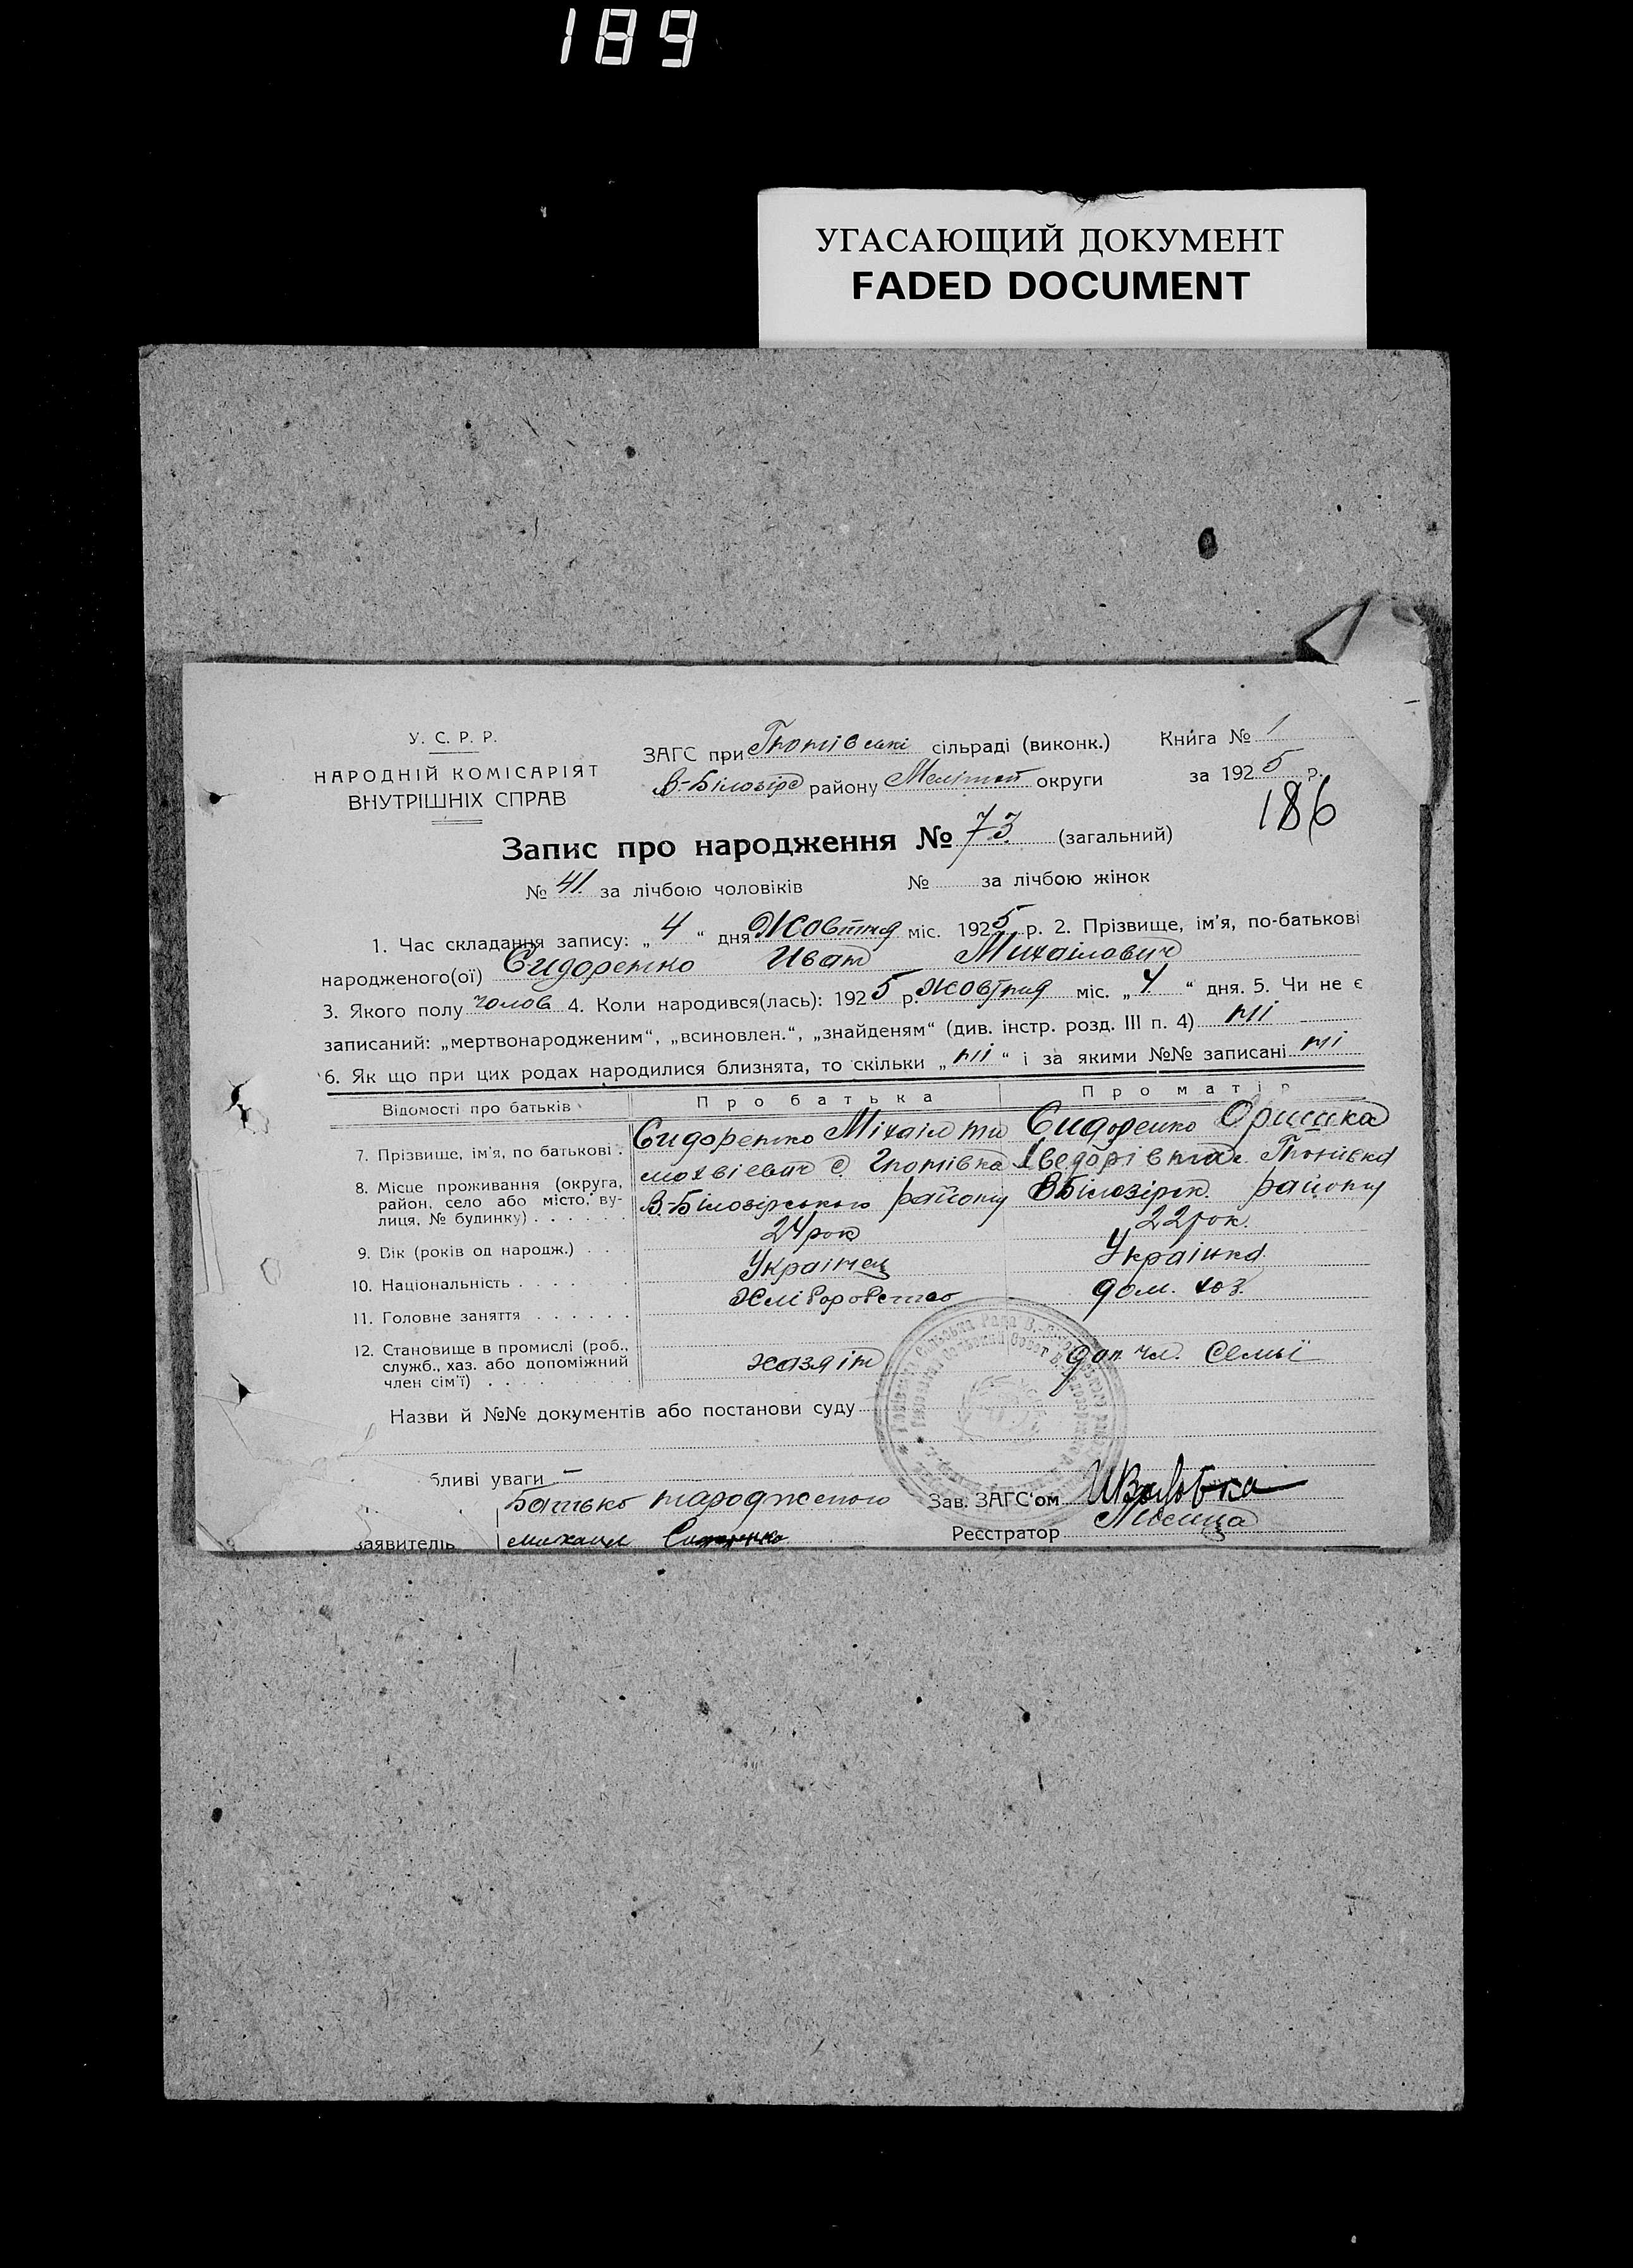 189
УГАСАЮЩИЙ ДОКУМЕНТ
FADED DOCUMENT
У. С. Р. Р.
НАРОДНІЙ КОМІСАРІЯТ
ВНУТРІШНІХ СПРАВ
ЗАГС при сільраді (виконк.) Книга № 1
В-Білозірс району Меліто округи за 1925 р.
186
Запис про народження № 73 (загальний)
№ 41 за лічбою чоловіків № за лічбою жінок
1. Час складання запису: „ 4 “ дня Жовтня міс. 1925 р. 2. Прізвище, ім'я, по-батькові
народженого(ої) Сидоренко Иван Михайлович
3. Якого полу чолов 4. Коли народився(лась): 1925 р. жовтня міс. „ 4 “ дня. 5. Чи не є
записаний: „мертвонародженим“, „всиновлен.“, „знайденям“ (див. інстр. розд. III п. 4) ні
6. Як що при цих родах народилися близнята, то скільки „ ні “ і за якими №№ записані ні
Відомості про батьків Про батька Про матір
7. Прізвище, ім'я, по батькові . Сидоренко Міхаіл Сидоренко Оришка
8. Місце проживання (округа, район, село або місто, вулиця, № будинку) . . . . . . В.-Білозірського району В Білозірск. району
9. Вік (років од народж.) . . 24 рок 22 рок.
10. Національність . . . . . Українец Українка
11. Головне заняття . . . . . . Хліборобство дом. хоз.
12. Становище в промислі (роб., служб., хаз. або допоміжний член сім'ї) . . . . . . . . хазяін доп. чл. семьї
Назви й №№ документів або постанови суду
бливі уваги –
Батько народженого Зав. ЗАГС'ом
заявитель Михаил Сидоренко Реєстратор